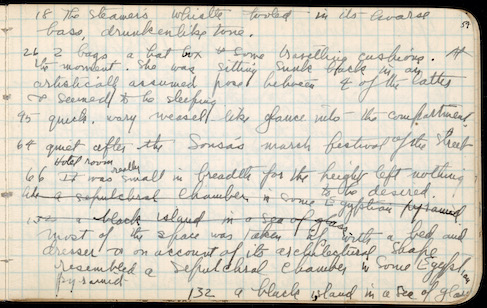 59
18 the steamer's whistle tooted in its hoarse
bass, drunkenlike tone.
26 2 bags a hat box & some travelling cushions. At
the moment. She was sitting sunk back in an
artistically assumed pose between 4 of the latter
& seemed to be sleeping
95 quick, wary weasel-like glance into the compartment.
64 quiet after the Sousa's march festival of the street
Hotel room really
66 It was small in breadth for the height left nothing
to be desired
like a sepulchral chamber in some Egyptian pyramid
132 a black island in a sea of glass
most of the space was taken up with a bed and
dresser on account of its architectural shape
resembled a sepulchral chamber in some Egyptian
pyramid
132 a black island in a sea of glass